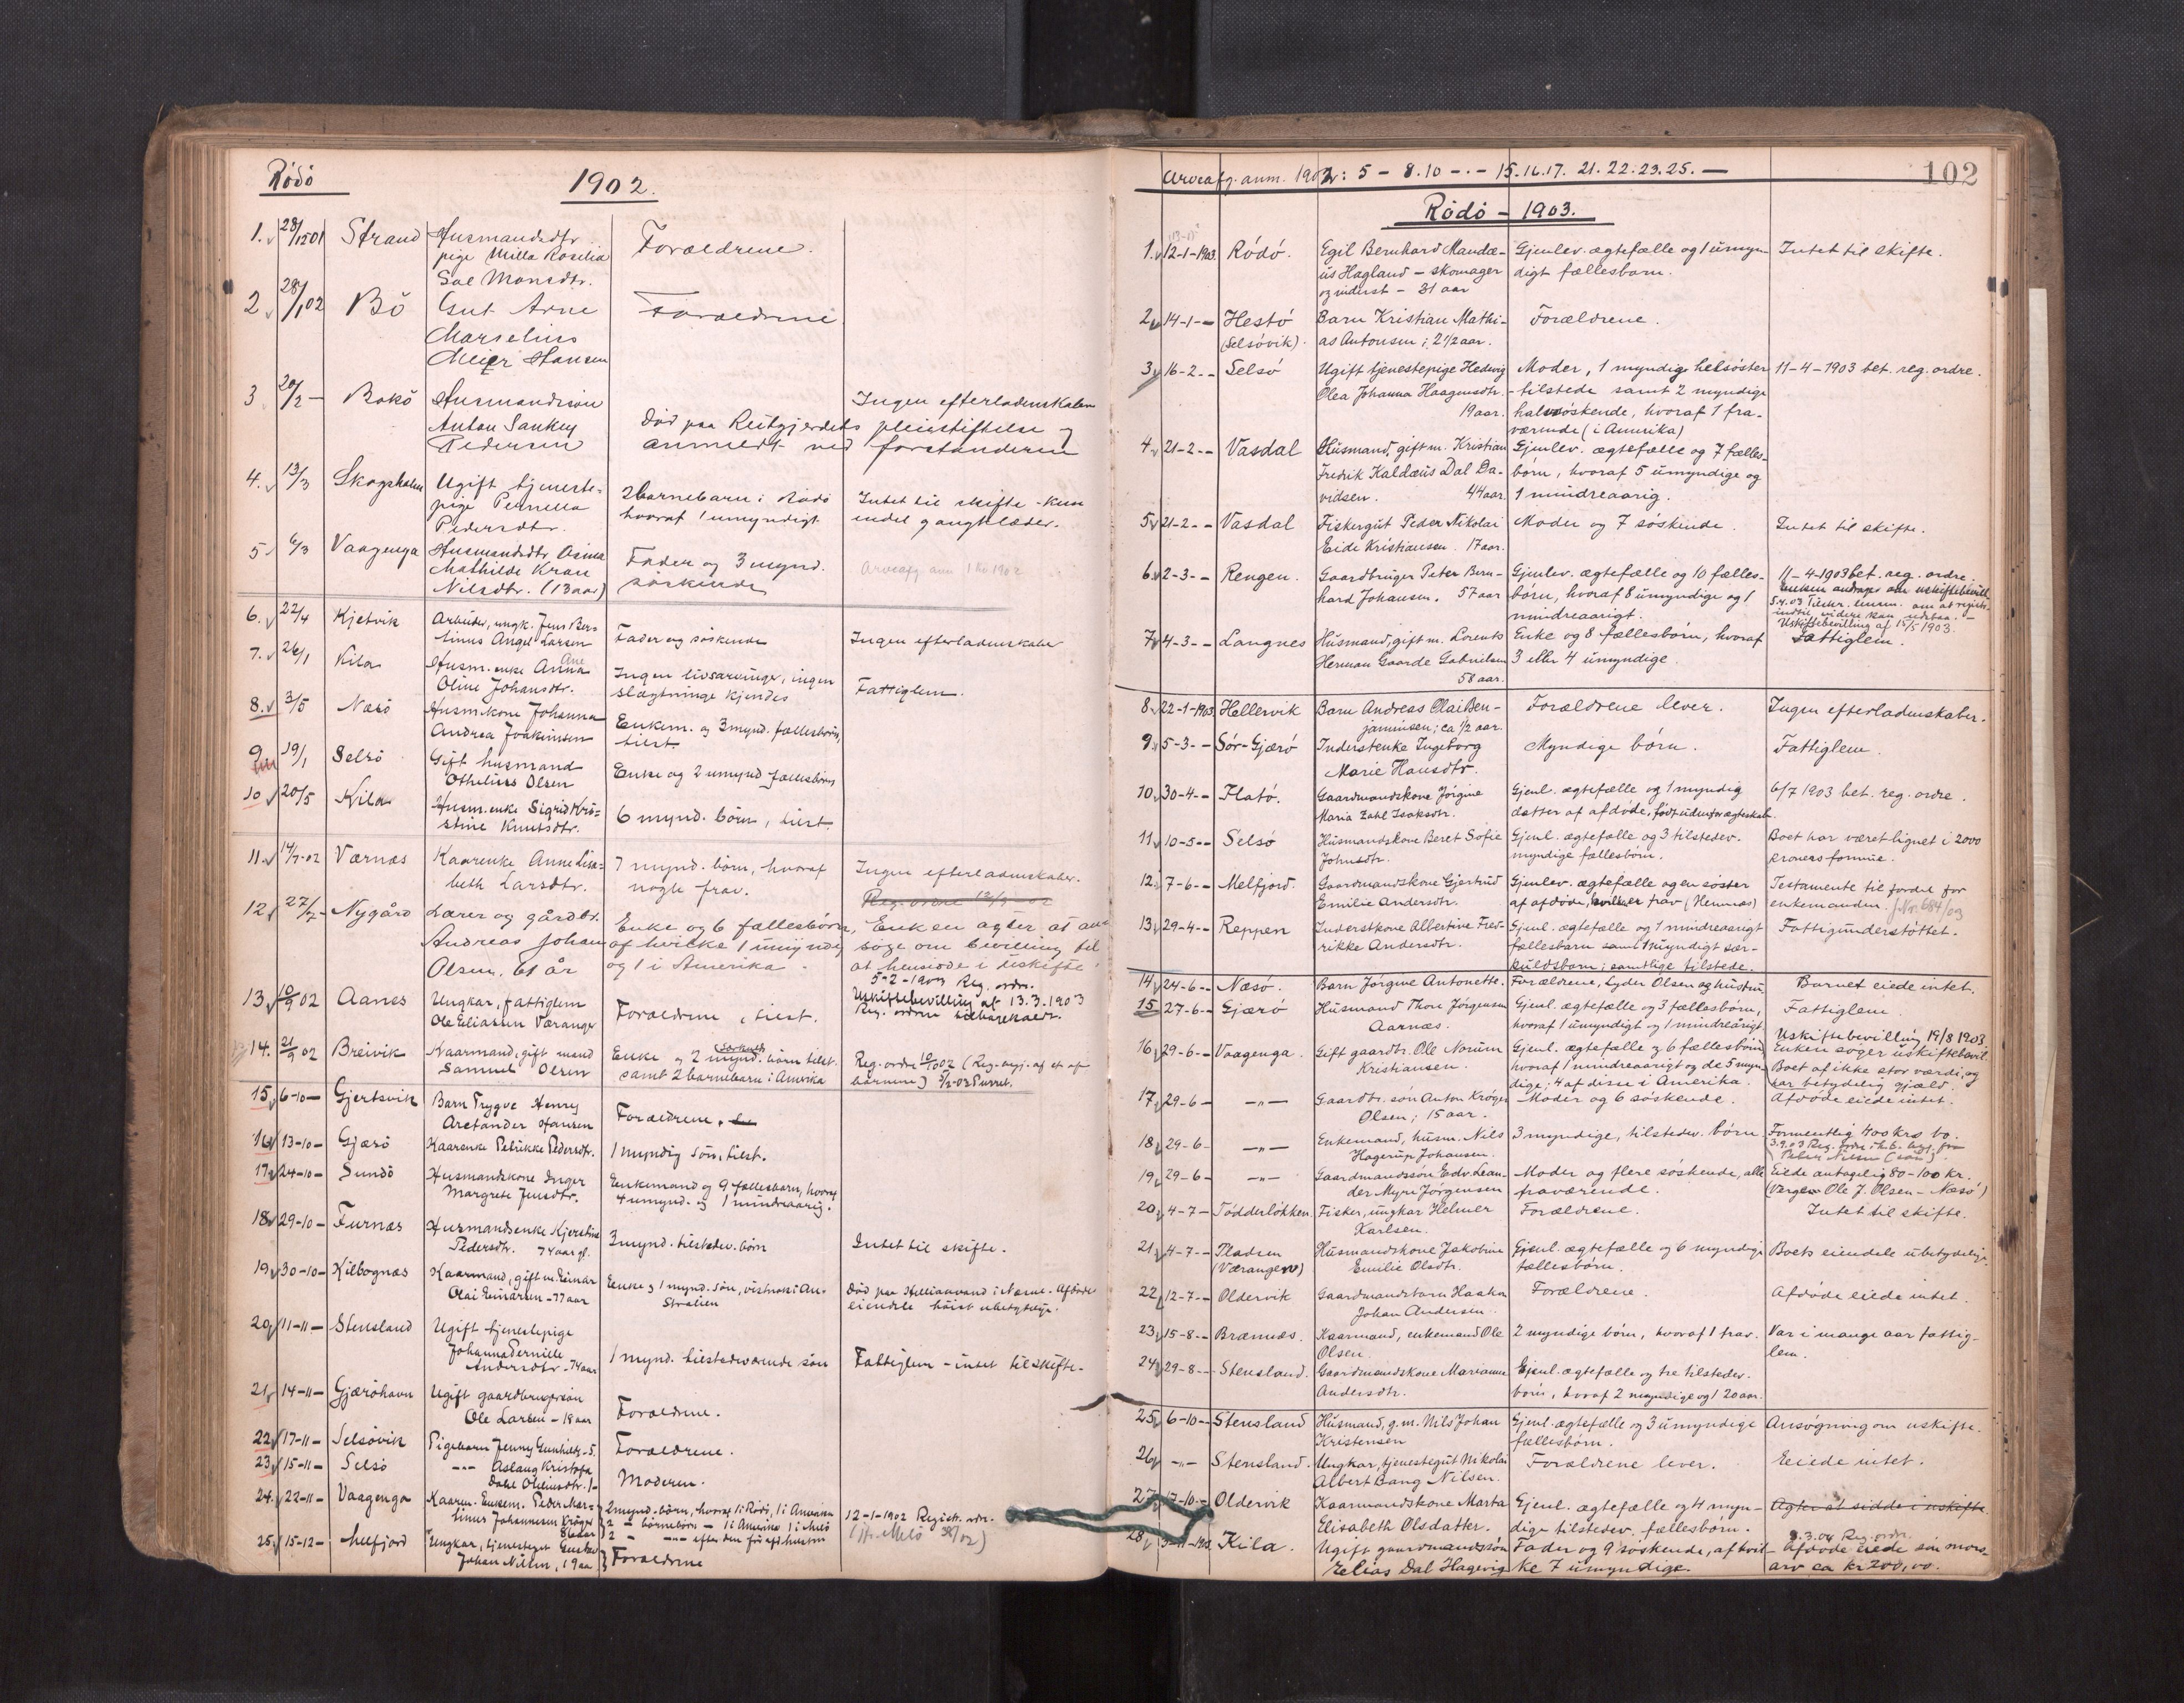 Rödö
1902.
1. 28/12 01 Strand Husmandsdtr. Forældrene.
pige Milla Rosilia
Sae Monsdtr.
2 28/1 02 Bö Gut Arne Forældrene.
Marselius
Meier Hansen
3 20/2 – Bokö Husmandssön Ingen efterladenskaber
Anton Sankey Död paa Reitgjerdets pleiestiftelse og
Pedersen anmeldt ved forstanderen
4. 13/3 Skogsholm Ugift tjeneste- 2 barnebarn i Rödö Intet til skifte - kun
pige Pernella hvoraf 1 umyndigt endel gangklæder.
Pedersdtr.
5. 6/3 Vaagenga Husmandsdtr. Asina Fader og 3 mynd. Arveafg. anm
Mathilde Kran söskende
Nilsdtr. (13 aar)
6. 22/4 Kjetvik Arbeider, ungk. Jens Ber- Fader og söskende Ingen efterladenskaber
tinus Angel Larsen
7. 26/1 Kila Husm. enke Anna Ane Ingen livsarvinger, ingen Fattiglem.
Oline Johansdtr. slægtninge kjendes
8. 3/5 Næsö Husm.kone Johanna Enkem. og 3 mynd. fællesbörn,
Andrea Joakimsen tilst.
9 19/1 Selsö Gift husmand Enke og 2 umynd. fællesbörn
Othelius Olsen
10 20/5 Kila Husm. enke Sigrid Kri- 6 mynd. börn, tilst.
stine Knutsdtr.
11. 14/7-02 Værnæs Kaarenke Anne Lisa- 7 mynd. börn, hvoraf Ingen efterladenskaber.
beth Larsdtr. nogle frav.
12 27/7- Nygård Lærer og gårdbr. Enke og 6 fællesbörn, Enken agter at an-
Andreas Johan af hvilke 1 umyndig söge om bevilling til
Olsen, 61 år og 1 i Amerika. at hensidde i uskifte.
5-2-1903 Reg. ordr.
Uskiftebevilling af 13.3.1903
Reg. ordren tilbagekaldt.
13. 10/9 02 Aanes Ungkar, fattiglem Forældrene, tilst.
Ole Eliassen Væranger
14. 21/9 02 Breivik Kaarmand, gift mand Enke og 2 mynd. börn tilst. Reg. ordre 10/10 02
Samuel Olsen samt 2 barnebarn i Amerika
15 6-10- Gjertsvik Barn Trygve Henry Forældrene.
Aretander Hansen
16 13-10- Gjærö Kaarenke Petrikke Pedersdtr. 1 myndig sön, tilst.
17 24-10- Sundö Husmandskone Inger Enkemand og 9 fællesbarn, hvoraf
Margrete Jensdtr. 4 umynd. og 1 mindreaarig.
18 29-10- Furnæs Husmandsenke Kjerstine 3 mynd. tilstedev. börn Intet til skifte.
Pedersdtr. 74 aar gl.
19 30-10- Kilbognæs Kaarmand, gift m. Einar Enke og 1 mynd. sön, vistnok i Au- Död paa
Olai Einarsen - 77 aar stralien eiendele höist ubetydelige.
20 11-11- Stensland Ugift tjenestepige
Johanna Pernille 1 mynd. tilstedeværende sön Fattiglem - intet til skifte -
Andersdtr. - 74 aar
21 14-11- Gjæröhavn Ugift gaardbrugersön Forældrene.
Ole Larsen - 18 aar
22 17-11- Selsövik Pigebarn Jenny Forældrene.
23 15-11- Selsö -"- Aslaug Kristofa Moderen.
24. 22-11- Vaagenga Kaarm. Enkem. Peder Mar- 2 mynd. börn, hvoraf 1 i Rödö, 1 i Amerika 12-1-1902 Registr. ordr.
tinus Johannessen Kröger 2 - börnebörn - 1 i Amerika 1 i Melö
25. 15-12- Melfjord Ungkar, tjenestegut Gustav Forældrene
Johan Nilsen, 19 aar
Arveafg. anm. 1902: 5 - 8. 10 - . - 15. 16. 17. 21. 22. 23. 25. -
102
Rödö - 1903.
1. 12-1-1903 Rödö. Egil Bernhard Mandæ- Gjenlev. ægtefælle og 1 umyn- Intet til skifte.
us Hagland - skomager digt fællesbarn.
og inderst - 31 aar
2 14-1-- Hestö Barn Kristian Mathi- Forældrene.
(Selsövik). as Antonsen; 2 1/2 aar.
3 16-2-- Selsö Ugift tjenestepige Hedvig Moder, 1 myndig helsöster 11-4-1903 bet. reg. ordre.
Olea Johanna Haagensdtr. - tilstede samt 2 myndige
19 aar. halvsöskende, hvoraf 1 fra-
værende (i Amerika)
4 21-2-- Vasdal Husmand, gift m. Kristian Gjenlev. ægtefælle og 7 fælles-
Fredrik Kaldæus Dal Da- börn, hvoraf 5 umyndige og
vidsen. 44 aar. 1 mindreaarig.
5 21-2-- Vasdal Fiskergut Peder Nikolai Moder og 7 söskende. Intet til skifte.
Eide Kristiansen. 17 aar.
6 2-3-- Rengen. Gaardbruger Peter Bern- Gjenlev. ægtefælle og 10 fælles- 11-4-1903 bet. reg. ordre.
hard Johansen. 57 aar börn, hvoraf 8 umyndige og 1 Enken andrager om uskiftebevill.
mindreaarigt. Uskiftebevilling af 15/5 1903.
7 4-3-- Langnes Husmand, gift m. Lorents Enke og 8 fællesbörn, hvoraf Fattiglem.
Herman Gaarde Gabrielsen 3 eller 4 umyndige.
58 aar.
8 22-1-1903 Hellervik Barn Andreas Olai Ben- Forældrene lever. Ingen efterladenskaber.
jaminsen; ca 1/2 aar.
9 5-3-- Sör-Gjærö Inderstenke Ingeborg Myndige börn. Fattiglem.
Marie Hansdtr.
10 30-4-- Flatö. Gaardmandskone Jörgine Gjenl. ægtefælle og 1 myndig 6/7 1903 bet. reg. ordre.
Maria Zahl Isaksdtr. datter af afdöde, född udenfor ægteskab.
11 10-5-- Selsö Husmandskone Beret Sofie Gjenl. ægtefælle og 3 tilstedev. Boet har været lignet i 2000
Johnsdtr. myndige fællesbörn. kroners formue.
12 7-6-- Melfjord. Gaardmandskone Gjertrud Gjenlev. ægtefælle og en söster Testamente til fordel for
Emilie Andersdtr. af afdöde, hvilken er frav (Hemnæs) enkemanden. J.Nr. 684/03
13 29-4-- Reppen Inderstkone Albertine Fred- Gjenl. ægtefælle og 1 mindreaarigt Fattigunderstöttet.
rikke Andersdtr. fællesbarn samt 1 myndigt sær-
kuldsbarn; samtlige tilstede.
14 24-6-- Næsö. Barn Jörgine Antonette. Forældrene, Lyder Olsen og hustru. Barnet eiede intet.
15 27-6-- Gjærö Husmand Thore Jörgensen Gjenl. ægtefælle og 3 fællesbörn, Fattiglem.
Aarnæs. hvoraf 1 umyndigt og 1 mindreårigt
Uskiftebevilling 19/8 1903.
16 29-6-- Vaagenga. Gift gaardbr. Ole Norum Gjenl. ægtefælle og 6 fællesbörn Enken söger uskiftebevil.
Kristiansen. hvoraf 1 mindreaarigt og de 5 myn- Boet af ikke stor værdi, og
dige; 4 af disse i Amerika. har betydelig gjæld.
17 29-6 -"- Gaardbr. sön Anton Kröger Moder og 6 söskende. Afdöde eiede intet.
Olsen; 15 aar.
18 29-6- -"- Enkemand, husm. Nils 3 myndige, tilstedev. börn Formentlig 400 krs bo.
Hagerup Johansen.
19 29-6- -"- Gaardmandssön Edv. Lean- Moder og flere söskende, alle Eiede antagelig 80-100 kr.
der Myre Jörgensen fraværende. (Vergen Ole J. Olsen - Næsö)
20 4-7- Todderlökken. Fisker, ungkar Helmer Forældrene. Intet til skifte.
Karlsen.
21 4-7-- Pladsen Husmandskone Jakobine Gjenl. ægtefælle og 6 myndige Boets eiendele ubetydelige
(Værangen) Emilie Olsdtr. fællesbörn.
22 12-7-- Oldervik Gaardmandsbarn Haakn Forældrene. Afdöde eiede intet.
Johan Andersen.
23 15-8-- Bræmnæs. Kaarmand, enkemand Ole 2 myndige börn, hvoraf 1 frav. Var i mange aar fattig-
Olsen. lem.
24 29-8-- Stensland. Gaardmandskone Marianne Gjenl. ægtefælle og tre tilstedev.
Andersdtr. börn, hvoraf 2 myndige og 1 20 aar.
25 6-10-- Stensland Husmand, g.m. Nils Johan Gjenl. ægtefælle og 3 umyndige Ansögning om uskifte.
Kristensen fællesbörn.
26 -"- Stensland. Ungkar, tjenestegut Nikolai Forældrene lever. Eiede intet.
Albert Bang Nilsen.
27 17-10-- Oldervik Kaarmandskone Marta Gjenl. ægtefælle og 4 myn- Agter at sidde i uskifte
Elisabeth Olsdatter. dige tilstedev. fællesbörn. 8.3.04 Reg. ordr.
28 Kila. Ugift gaardmandssön Fader og 9 söskende, af hvil- Afdöde eiede sin mors-
Elias Dal Hagevig ke 7 umyndige. arv ca kr 200,00.